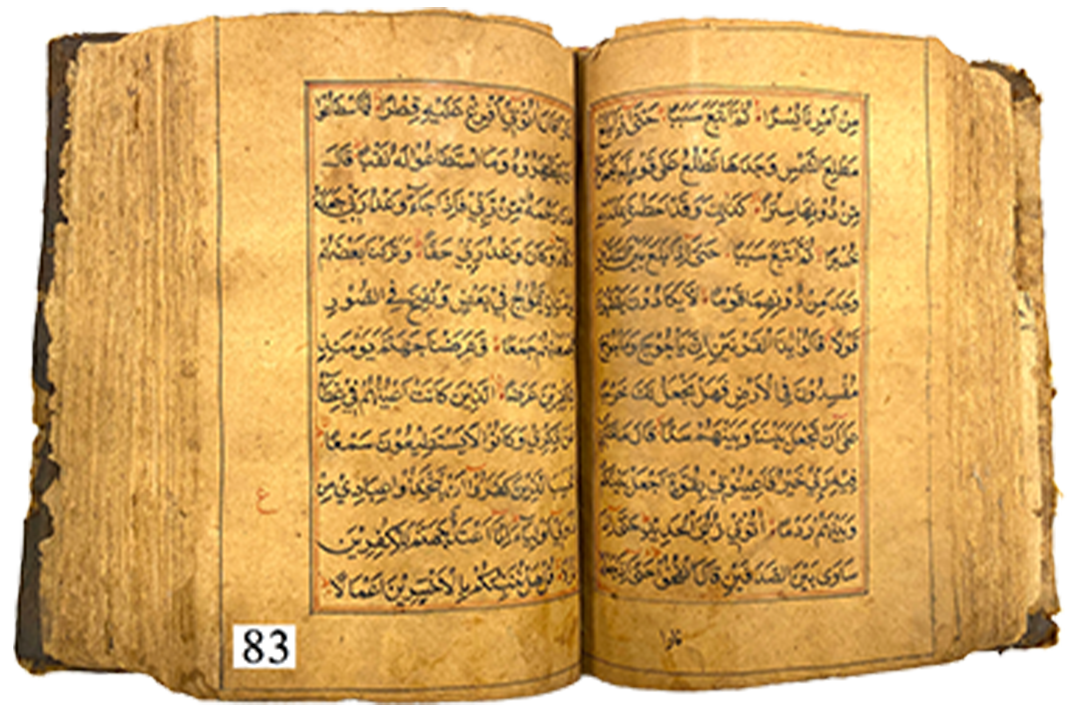 مِنْ اَمْرِنَا يُسْرًا ثُمَّ اَتْبَعَ سَبَبًا حَتّٰى اِذَا بَلَغَ
مَطْلِعَ الشَّمْسِ وَجَدَهَا تَطْلُعُ عَلٰى قَوْمٍ لَمْ نَجْعَلْ
مِنْ دُوْنِهَا سِتْرًا كَذٰلِكَ وَقَدْ اَحَطْنَا بِمَا لَدَيْهِ
خُبْرًا ثُمَّ اَتْبَعَ سَبَبًا حَتّٰى اِذَا بَلَغَ بَيْنَ
وَجَدَ مِنْ دُوْنِهِمَا قَوْمًا لَا يَكَادُوْنَ يَفْقَهُوْنَ
قَوْلًا قَالُوْا يٰذَا الْقَرْنَيْنِ اِنَّ يَاْجُوْجَ وَمَاْجُوْجَ
مُفْسِدُوْنَ فِي الْاَرْضِ فَهَلْ نَجْعَلُ لَكَ خَرْجًا
عَلٰى اَنْ تَجْعَلَ بَيْنَنَا وَبَيْنَهُمْ سَدًّا قَالَ مَا مَكَّنِّيْ
فِيْهِ رَبِّيْ خَيْرٌ فَاَعِيْنُوْنِيْ بِقُوَّةٍ اَجْعَلْ بَيْنَكُمْ
وَبَيْنَهُمْ رَدْمًا اٰتُوْنِيْ زُبَرَ الْحَدِيْدِ حَتّٰى اِذَا
سَاوٰى بَيْنَ الصَّدَفَيْنِ قَالَ انْفُخُوْا حَتّٰى اِذَا جَعَلَهُ
قَالَ اٰتُوْنِيْ اُفْرِغْ عَلَيْهِ قِطْرًا فَمَا اسْطَاعُوْا
يَظْهَرُوْهُ وَمَا اسْتَطَاعُوْا لَهُ نَقْبًا قَالَ
رَحْمَةٌ مِنْ رَبِّيْ فَاِذَا جَآءَ وَعْدُ رَبِّيْ جَعَلَهُ
وَكَانَ وَعْدُ رَبِّيْ حَقًّا وَتَرَكْنَا بَعْضَهُمْ
يَمُوْجُ فِيْ بَعْضٍ وَنُفِخَ فِي الصُّوْرِ
فَجَمَعْنٰهُمْ جَمْعًا وَعَرَضْنَا جَهَنَّمَ يَوْمَئِذٍ
لِلْكٰفِرِيْنَ عَرْضًا الَّذِيْنَ كَانَتْ اَعْيُنُهُمْ فِيْ غِطَآءٍ
عَنْ ذِكْرِيْ وَكَانُوْا لَا يَسْتَطِيْعُوْنَ سَمْعًا
اَفَحَسِبَ الَّذِيْنَ كَفَرُوْٓا اَنْ يَتَّخِذُوْا عِبَادِيْ مِنْ
دُوْنِيْ اَوْلِيَآءَ اِنَّا اَعْتَدْنَا جَهَنَّمَ لِلْكٰفِرِيْنَ
نُزُلًا قُلْ هَلْ نُنَبِّئُكُمْ بِالْاَخْسَرِيْنَ اَعْمَالًا
ع
83